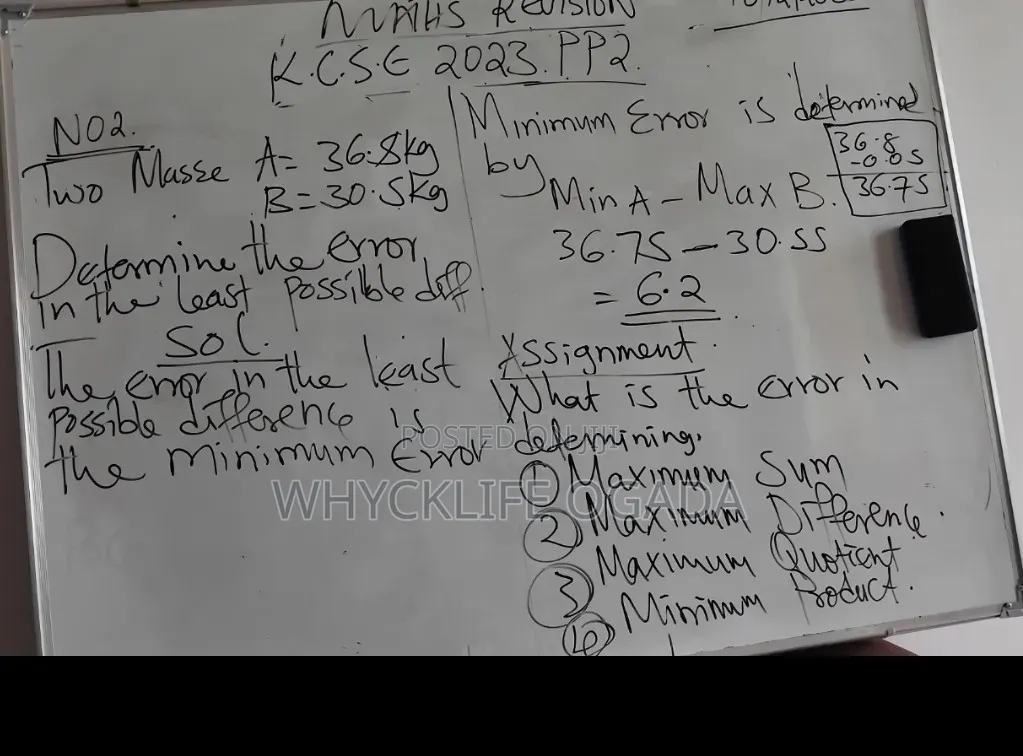 MATHS REVISION
K.C.S.E 2023.PP2.
NO2.
Two Masse A= 36.8kg
B=30.5kg
Determine the error
in the least possible diff.
SOL.
The error in the least
possible difference is
the minimum Error
Minimum Error is determined
by
Min A - Max B.
36.8
-0.05
36.75
36.75 - 30.55
= 6.2
Assignment.
What is the error in
determining.
1 Maximum Sum
2 Maximum Difference.
3 Maximum Quotient
4 Minimum Product.
POSTED ON JIJI
WHYCKLIFE OGADA